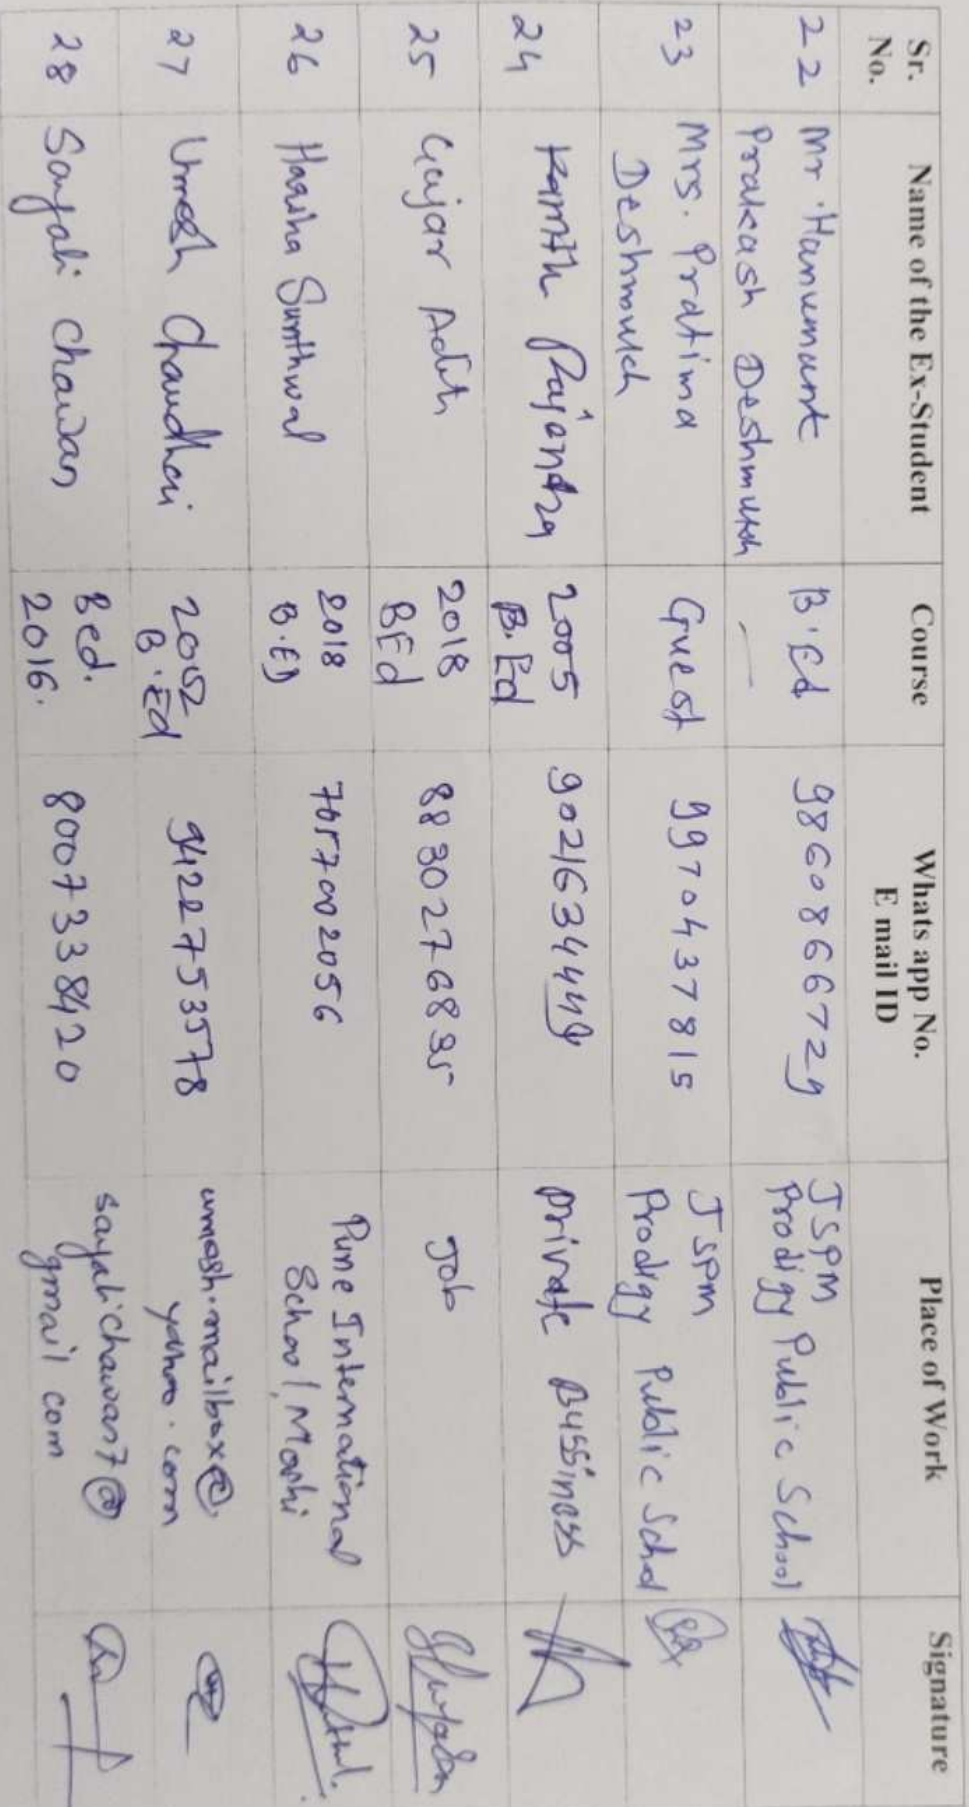 Sr. No. Name of the Ex-Student Course Whats app No. E mail ID Place of Work Signature
22 Mr. Hanumant Prakash Deshmukh B.Ed 9860866729 JSPM Prodigy Public School
23 Mrs. Pratima Deshmukh Guest 9970437815 JSPM Prodigy Public School
24 Rajendra 2005 B.Ed 9021634449 private Bussiness
25 Gujar 2018 BEd 8830276895 Job
26 2018 B.ED Pune International School, Moshi
27 Umesh Chaudhari 2002 B.Ed 9422753578 umesh.mailbox@ yahoo.com
28 Sayali Chawan Bed. 2016. 8007338420 sayalichawan7@ gmail com